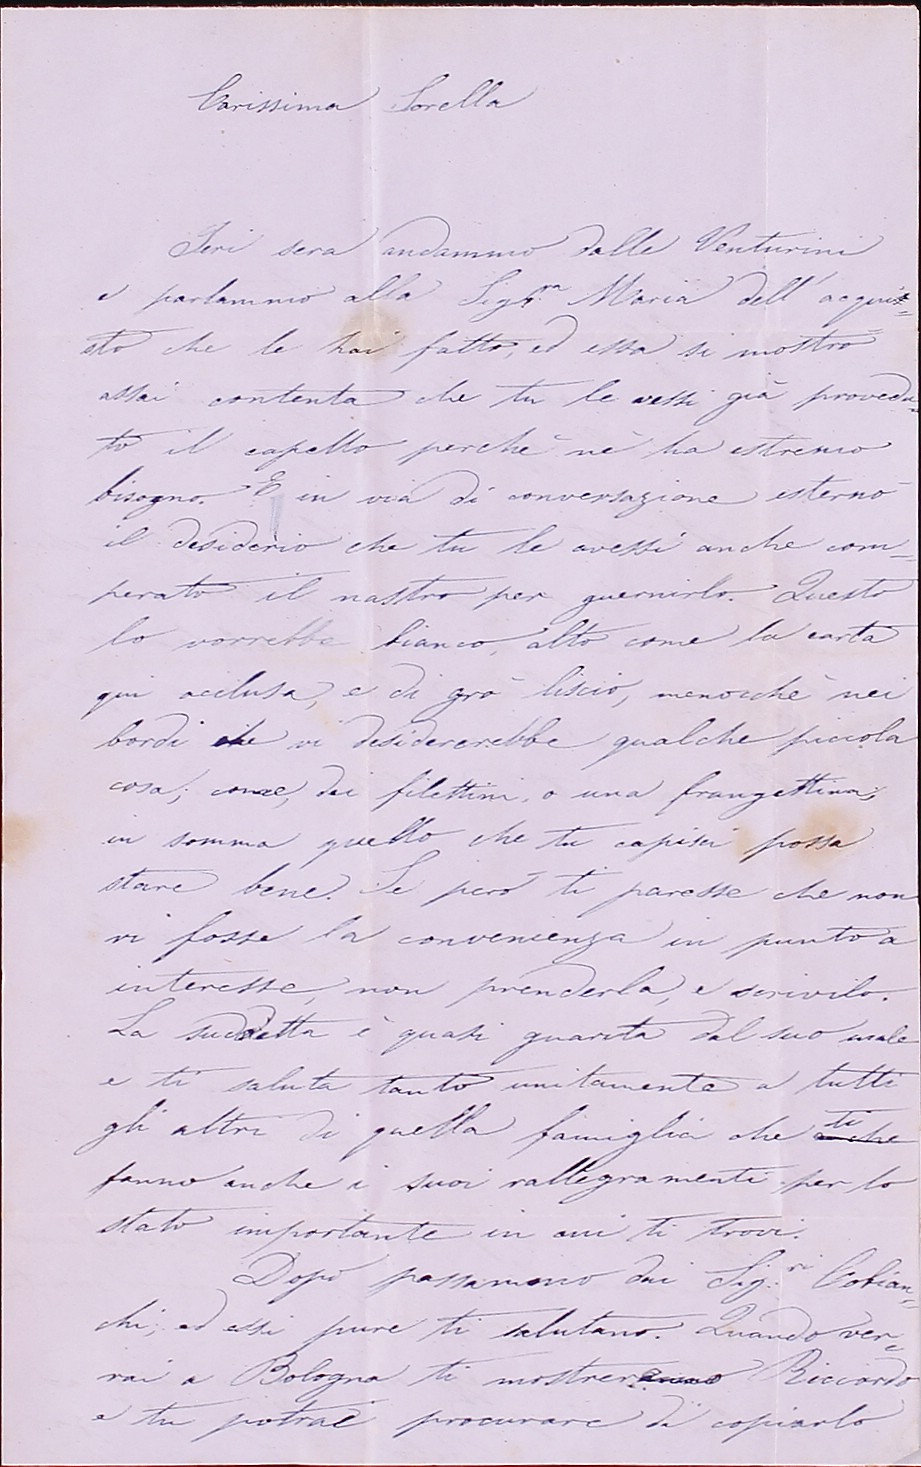 Carissima Sorella
Jeri sera andammo dalle Venturini
e parlammo alla Sigra. Maria dell' acqui=
sto che le hai fatto, ed essa si mostrò
assai contenta che tu le avessi già provedu=
to il capello perchè nè ha estremo
bisogno. E in via di conversazione esternò
il desiderio che tu le avessi anche com=
perato il nastro per guernirlo. Questo
lo vorrebbe bianco, alto come la carta
qui acclusa, e di grò liscio, menochè nei
bordi che vi desidererebbe qualche piccola
cosa; come, dei filettini, o una frangettina;
in somma quello che tu capisci possa
stare bene. Se però ti paresse che non
vi fosse la convenienza in punto a
interesse, non prenderla, e scrivilo.
La suddetta è quasi guarita dal suo male
e ti saluta tanto unitamente a tutti
gli altri di quella famiglia che ti
fanno anche i suoi rallegramenti per lo
stato importante in cui ti trovi.
Dopo passammo dai Sig.ri Cobian=
chi; ed essi pure ti salutano. Quando ver=
rai a Bologna ti mostrer Ricciardo
e tu potrai procurare di copiarlo